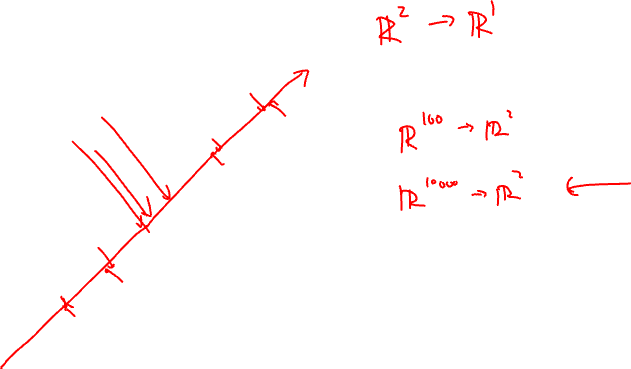 ℝ² → ℝ¹
ℝ¹⁰⁰ → ℝ²
ℝ¹⁰⁰⁰⁰ → ℝ² ←